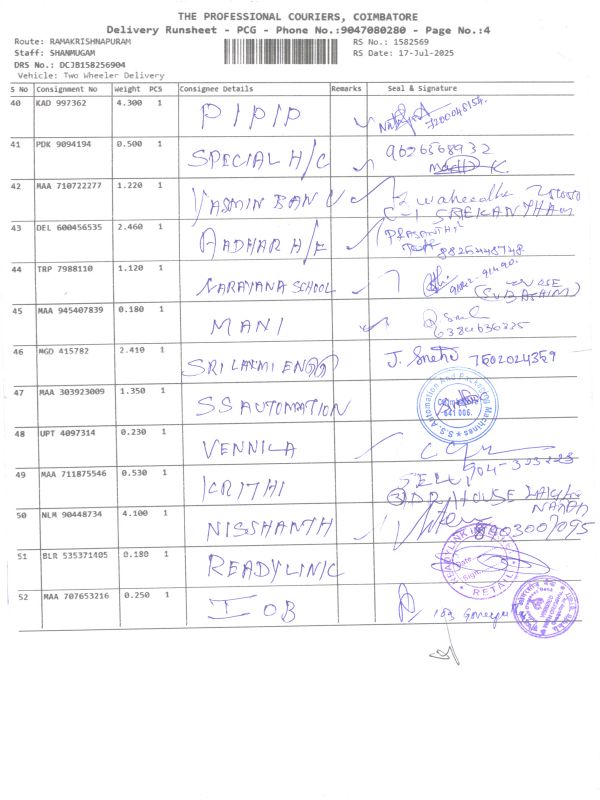 THE PROFESSIONAL COURIERS, COIMBATORE
Delivery Runsheet - PCG - Phone No.:9047080280 - Page No.:4
Route: RAMAKRISHNAPURAM RS No.: 1582569
Staff: SHANMUGAM RS Date: 17-Jul-2025
DRS No.: DCJB158256904
Vehicle: Two Wheeler Delivery
S No Consignment No Weight PCS Consignee Details Remarks Seal & Signature
40 KAD 997362 4.300 1 PIPIP
41 PDK 9094194 0.500 1 SPECIAL H/C 9626568932
42 MAA 710722277 1.220 1 YASMIN BANU
C-1 SREKANTHAM
43 DEL 600456535 2.460 1 AADHAR H/F PRASANTH
8825448748
44 TRP 7988110 1.120 1 NARAYANA SCHOOL
45 MAA 945407839 0.180 1 MANI
46 MGD 415782 2.410 1 SRI LAXMI ENGG J. Sneha 7502024359
47 MAA 303923009 1.350 1 SS AUTOMATION
S.S. Automation And Packaging Machines
641 006.
48 UPT 4097314 0.230 1 VENNILA
49 MAA 711875546 0.530 1 KRITHI
50 NLM 90448734 4.100 1 NISSHANTH 8903007095
51 BLR 535371405 0.180 1 READYLINK
RETAIL
52 MAA 707653216 0.250 1 IOB